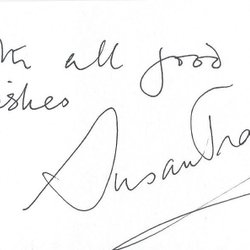 th all good
ishes
Susan Tra